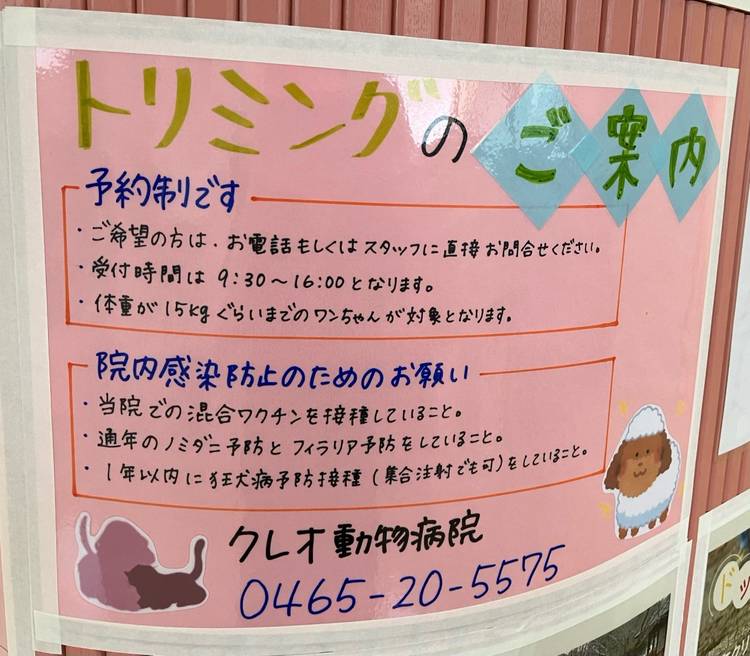 トリミングのご案内
予約制です
・ご希望の方は、お電話もしくはスタッフに直接お問合せください。
・受付時間は 9:30~16:00となります。
・体重が15kgぐらいまでのワンちゃんが対象となります。
院内感染防止のためのお願い
・当院での混合ワクチンを接種していること。
・通年のノミダニ予防とフィラリア予防をしていること。
・1年以内に狂犬病予防接種(集合注射でも可)をしていること。
クレオ動物病院
0465-20-5575
ドッ